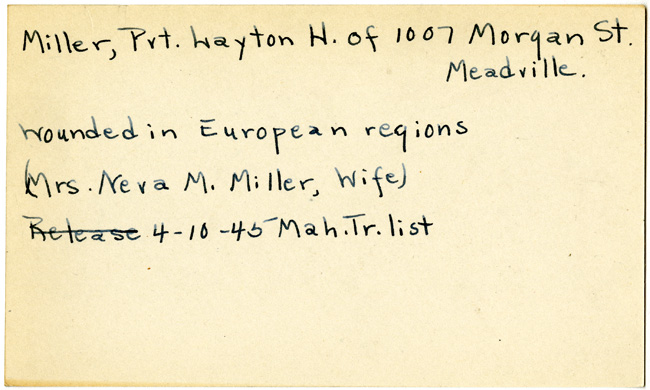 Miller, Pvt. Layton H. of 1007 Morgan St.
Meadville.
wounded in European regions
(Mrs. Neva M. Miller, Wife)
Release 4-10-45 Mah. Tr. list